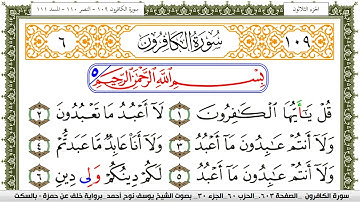 الجزء الثلاثون
سورة الكافرون ١٠٩ - النصر ١١٠ - المسد ١١١
١٠٩ سُورَةُ الكَافِرُونَ ٦
بِسْمِ اللَّهِ الرَّحْمَنِ الرَّحِيمِ
قُلْ يَٰٓأَيُّهَا ٱلْكَٰفِرُونَ ١ لَآ أَعْبُدُ مَا تَعْبُدُونَ ٢
وَلَآ أَنتُمْ عَٰبِدُونَ مَآ أَعْبُدُ ٣ وَلَآ أَنَا۠ عَابِدٌ مَّا عَبَدتُّمْ ٤
وَلَآ أَنتُمْ عَٰبِدُونَ مَآ أَعْبُدُ ٥ لَكُمْ دِينُكُمْ وَلِى دِينِ ٦
سورة الكافرون .. الصفحة ٦٠٣.. الحزب ٦٠.. الجزء ٣٠ .. بصوت الشيخ يوسف نوح أحمد. برواية خلف عن حمزة - بالسكت